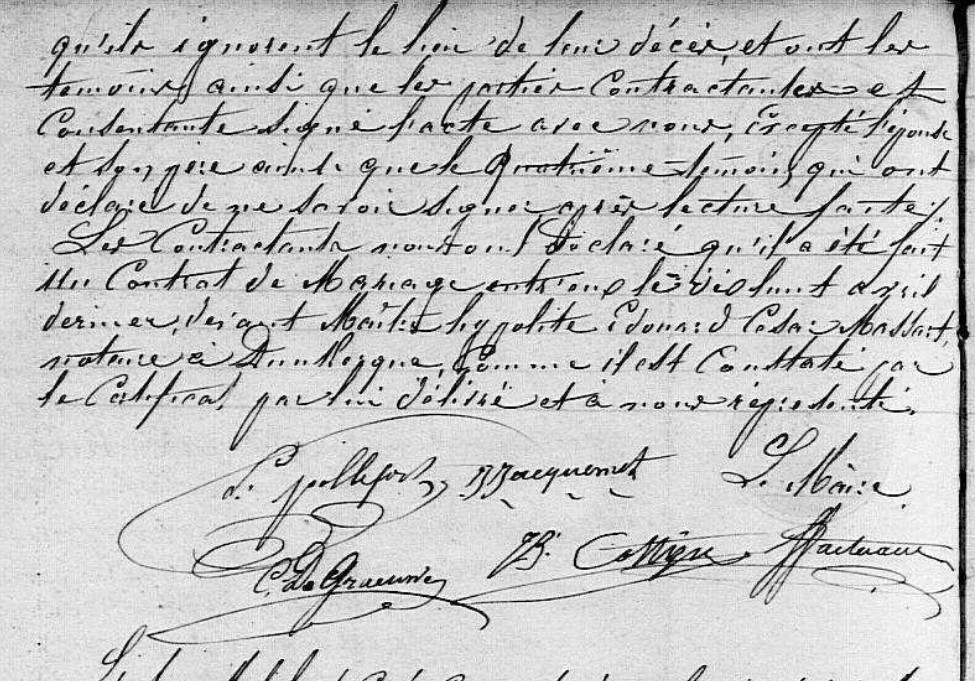 qu'ils ignorent le lieu de leur décès, et ont les
témoins, ainsi que les parties Contractantes et
Consentante signé l'acte avec nous, Excepté l'épouse
et son père ainsi que le quatrième témoin, qui ont
déclaré de ne savoir signer après lecture faite.
Les Contractants nous ont déclaré qu'il a été fait
un Contrat de Mariage entr'eux le avril
dernier, devant Maître hypolite Edouard César Massart,
notaire à Dunkerque, Comme il est Constaté par
le Certificat par lui délivré et à nous représenté.
Jacquemet Le Maire
C. De Graeuwe